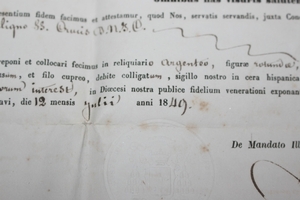 fidem facimus et attestamur, quod Nos, servatis servandis, juxta
D.N.J.C.
reponi et collocari fecimus in reliquiario Argenteo, figuræ rotundæ
et filo cupreo, debite colligatum, sigillo nostro in cera hispanica
interest), in Diœcesi nostra publice fidelium venerationi exponan
die 12 mensis Julii anni 1849.
De Mandato Ill